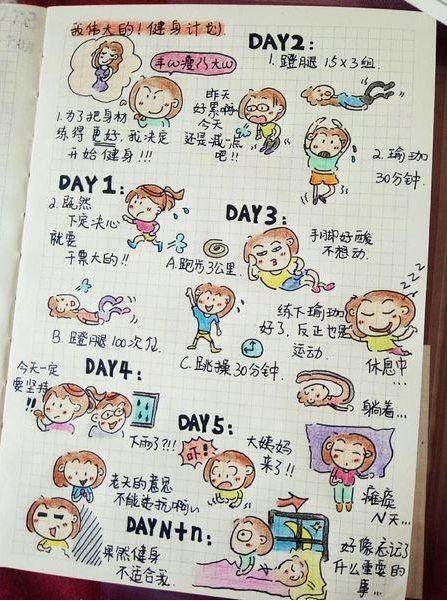 我伟大的!健身计划
丰ω瘦乃大ω
1.为了把身材
练得更好,我决定
开始健身!!!
DAY1:
2.既然
下定决心
就要
干票大的!!
A.跑步3公里.
B.蹬腿100次/位.
C.跳操30分钟.
DAY2:
1.蹬腿15x3组.
昨天
好累啊
今天
还是减一点
吧!!
2.瑜珈
30分钟.
DAY3:
手脚好酸
不想动.
练下瑜珈
好了.反正也是
运动.
zzz
休息中...
躺着...
DAY4:
今天一定
要坚持
!!
下雨了?!!
老天的意思
不能违抗啊~
果然健身
不适合我.
DAY5:
吓!
大姨妈
来了!!
瘫痪
N天...
DAYN+n:
好像忘记了
什么重要的
事...